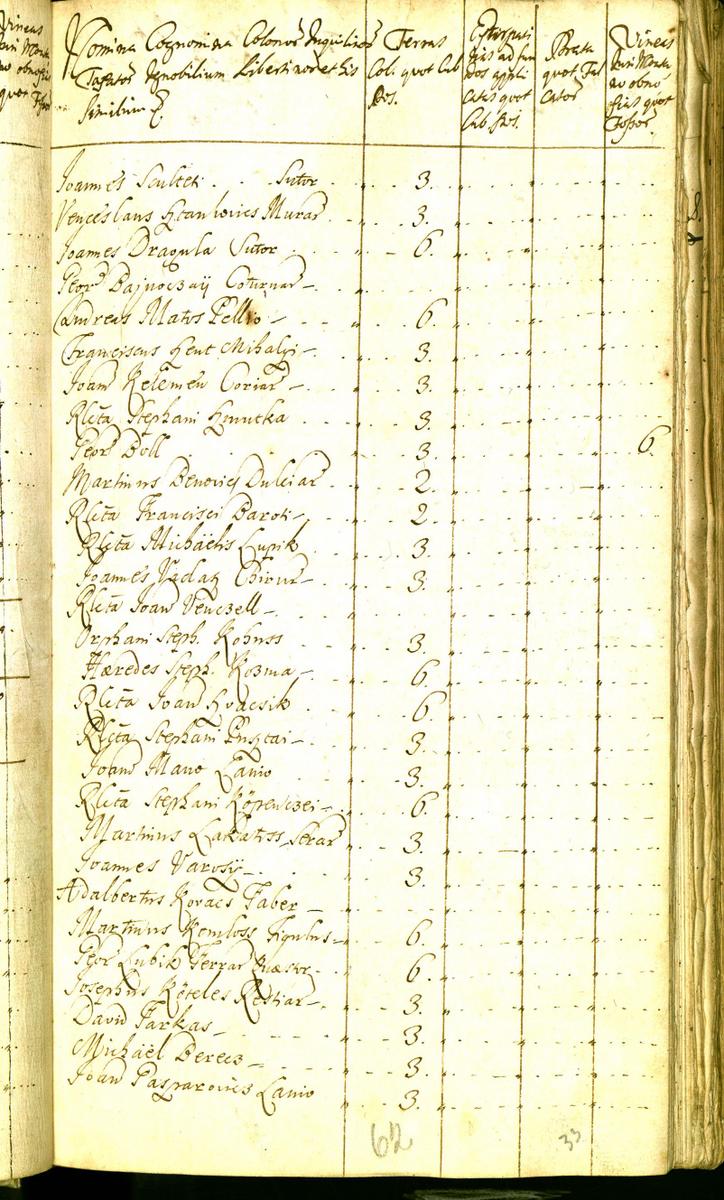 Nomina Cognomina Colonor Inquilinor
Taxator Ignobilium Libertinor et his
Similium
Terras
Coli quot Cub
los.
Extirpati
dos appli
catas quot
Cub
Prata
quot Fal
cator
Vineas
obno
xias quot
Fossor.
Joannes Sculteti Sutor 3.
Venceslaus Murar 3.
Joannes Dragula Sutor 6.
Geor Bajnoczaij Coturnar
Andreas Matus Pellio 6.
Franciscus Hent Mihalyi 3.
Joan Kelemen Coriar 3.
Rlcta Stephani Hnutka 3.
Geor Doll 3. 6.
Martinus Benovicz Dulciar 2.
Rlcta Francisci Baroti 2.
Rlcta Michaelis Lupik 3.
Joannes Vaclav Chirur 3.
Rlcta Joan Venczell
Orphani Steph. Kohuss 3.
Hæredes Steph. Kozma 6.
Rlcta Joan Kvacsik 6.
Rlcta Stephani Pusztai 3.
Joan Mano Lanio 3.
Rlcta Stephani Köpenczei 6.
Martinus Lakatiss Serar 3.
Joannes Varosÿ 3.
Adalbertus Kovacs Faber
Martinus Komloss Figulus 6.
Geor Lubik Ferrar Quæstor 6.
Josephus Köteles Restiar 3.
David Farkas 3.
Michaël Derecz 3.
Joan Pasparovics Lanio 3.
62
33